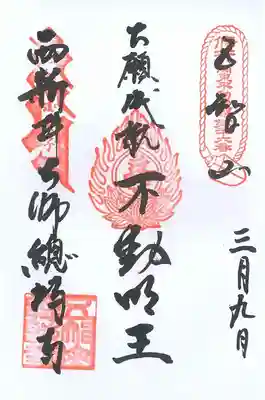 五智山
三月九日
大願成就 不動明王
西新井大師總持寺